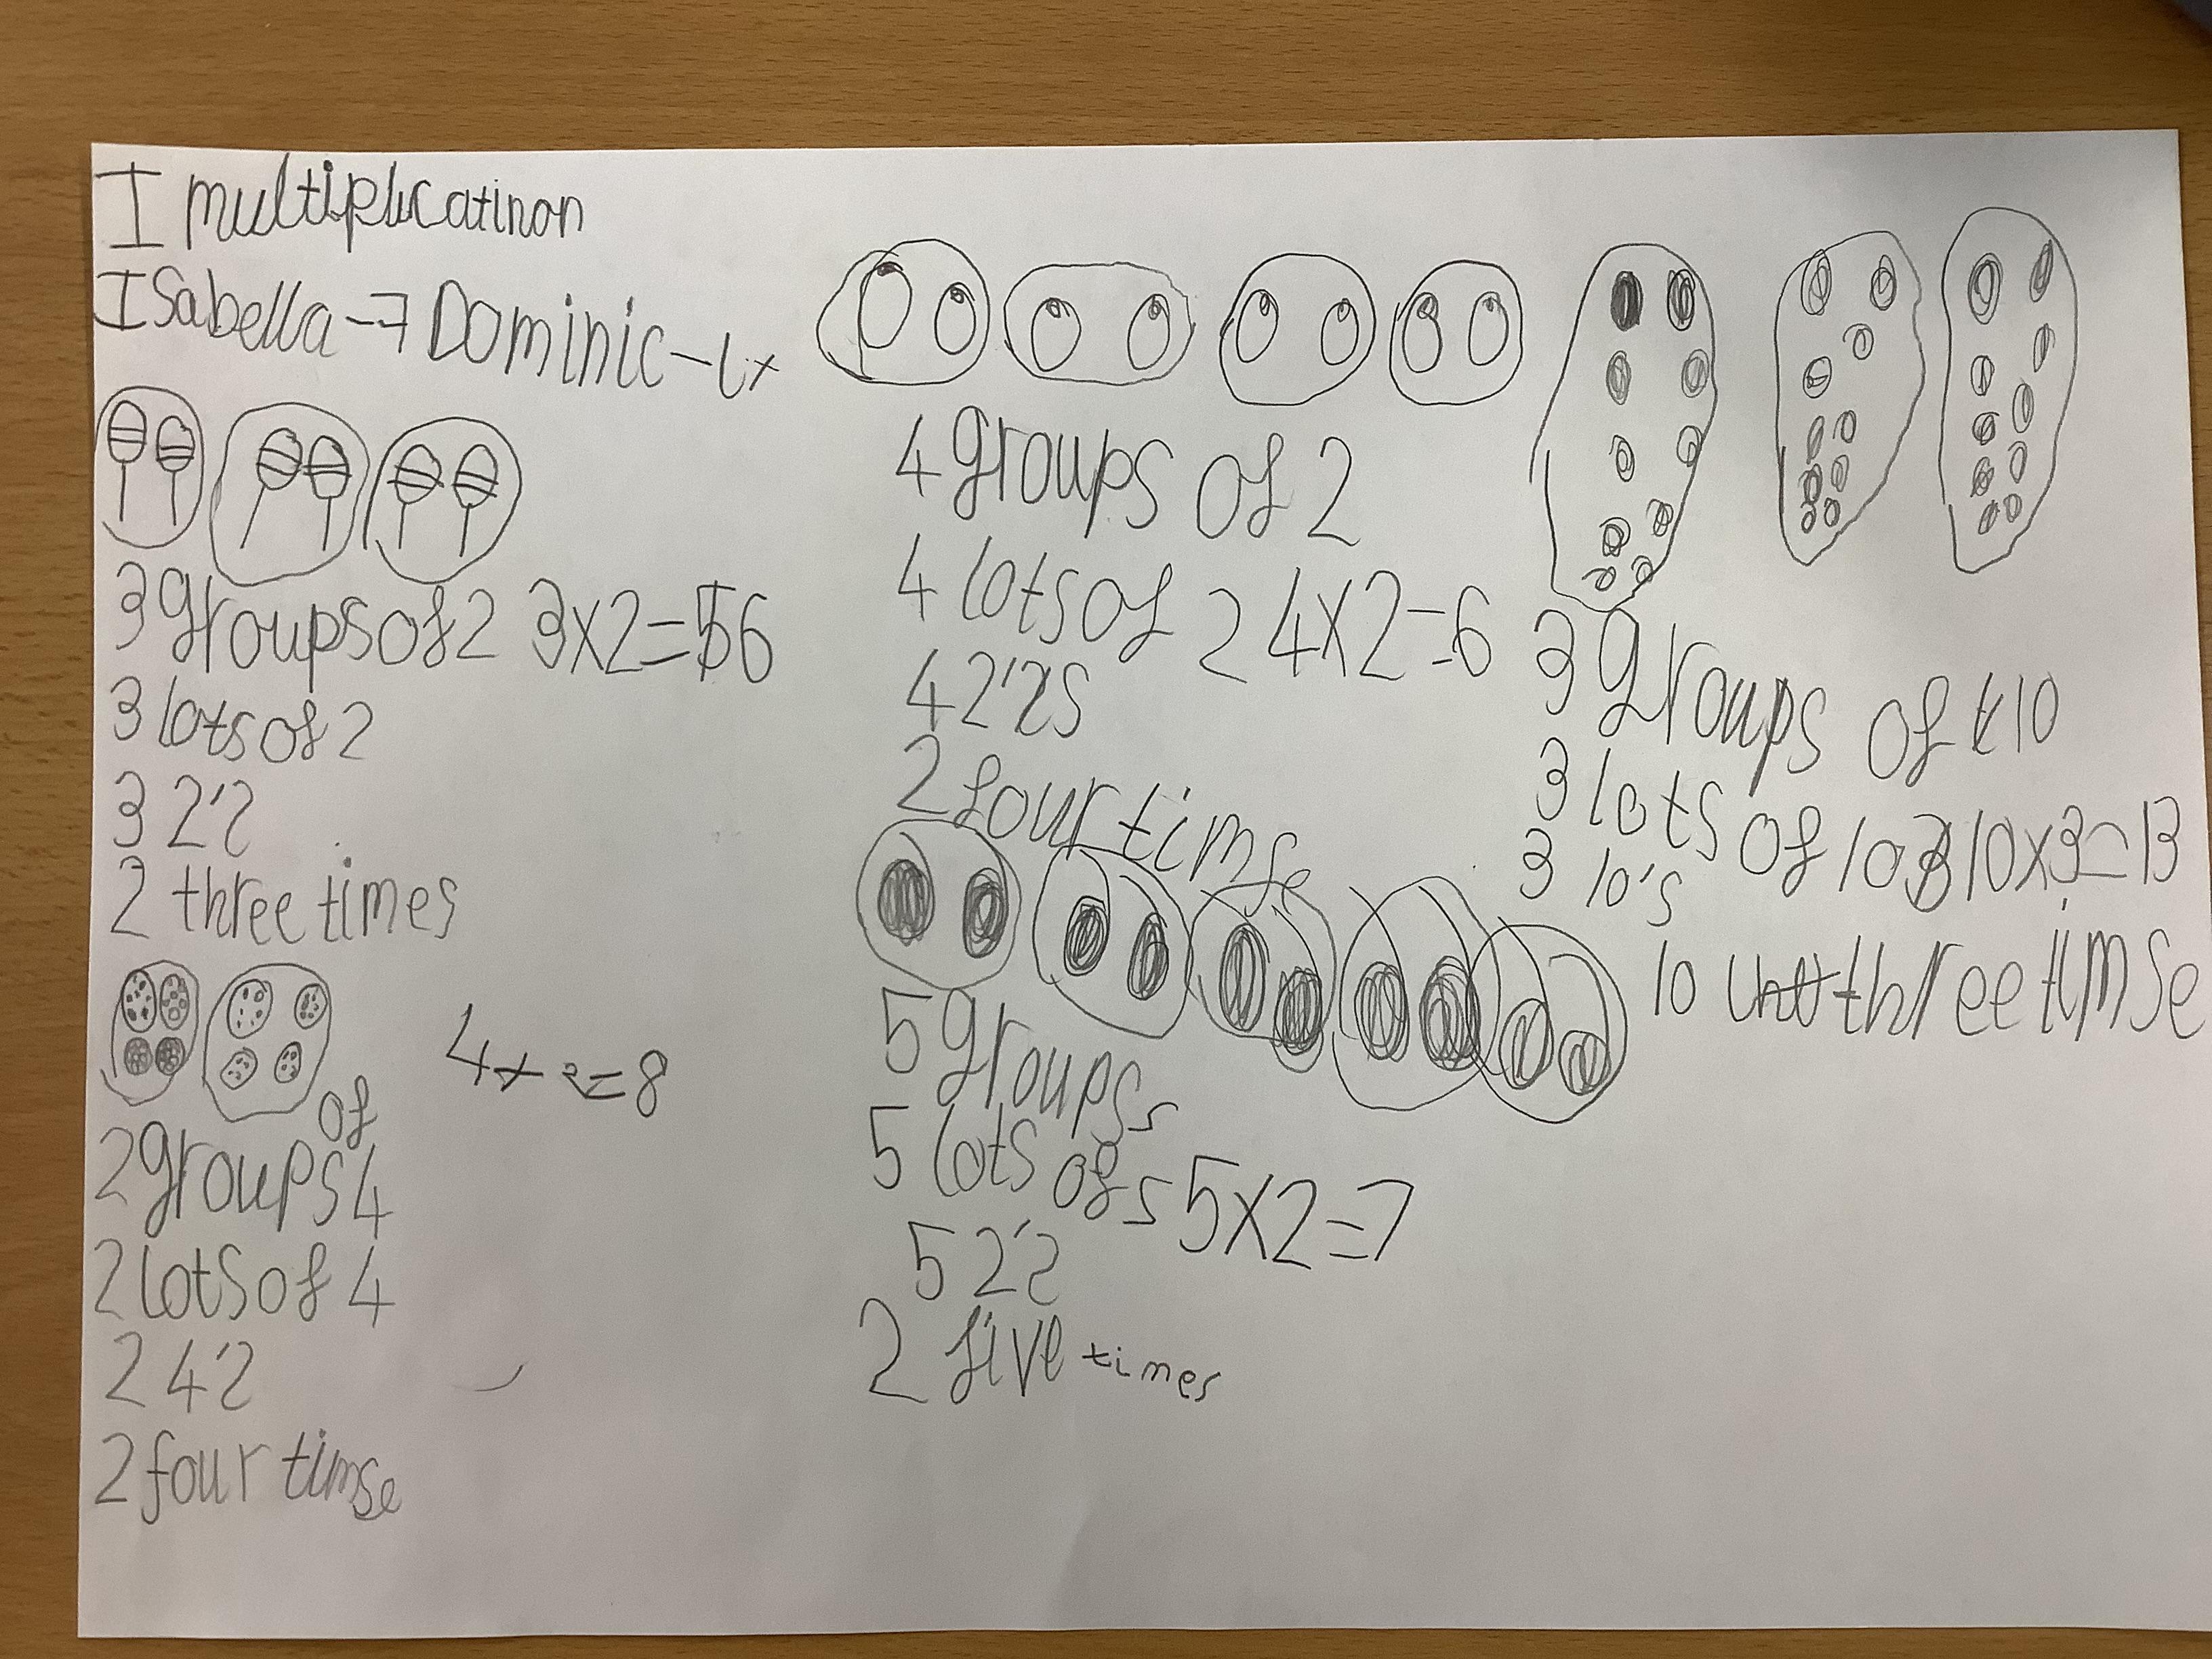 I multiplicatinon
ISabella - 7 Dominic -
3 groups of 2 3x2=56
3 lots of 2
3 2'2
2 three times
4x2=8
of
2 groups 4
2 lots of 4
2 4'2
2 four timse
4 groups of 2
4 lots of 2 4x2=6
4 2'2s
2 four timse
5 groups s
5 lots of s 5x2=7
5 2'2
2 five times
3 groups of 10
3 lots of 10 10x3=13
3 10's
10 three timse